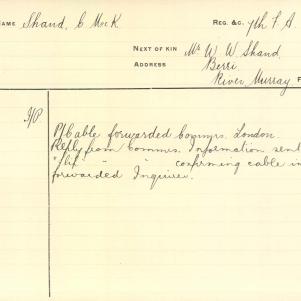 NAME Shand, C McK REG. &C. 7th F. A.
NEXT OF KIN Mr W W Shand,
ADDRESS Berri,
River Murray
P/Cable forwarded Commrs. London.
Reply from Commrs. Information sent
" " confirming cable in
forwarded Inquirer.